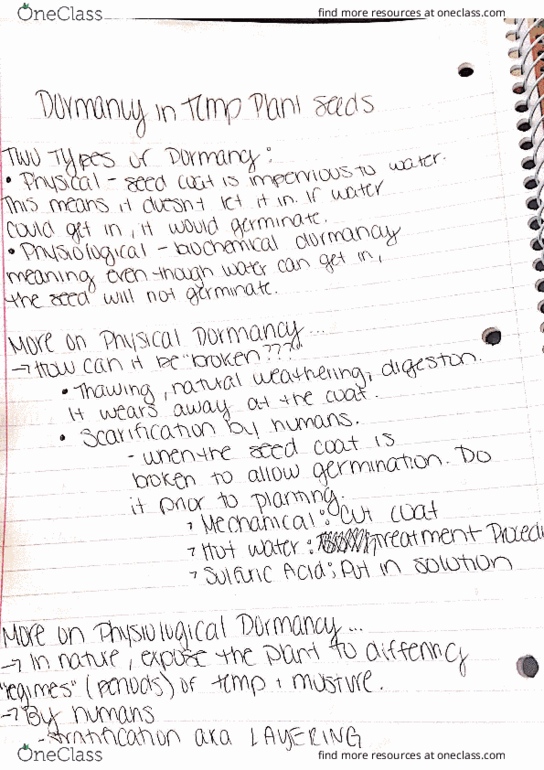 OneClass
find more resources at oneclass.com
Dormancy in Temp Plant Seeds
Two Types of Dormany:
• Physical - seed coat is impervious to water.
This means it doesn't let it in. If water
could get in, it would germinate.
• Physiological - biochemical dormancy
meaning even though water can get in,
the seed will not germinate.
More on Physical Dormancy...
→ How can it be "broken"????
• Thawing, natural weathering, digestion.
It wears away at the coat.
• Scarification by humans.
- when the seed coat is
broken to allow germination. Do
it prior to planting.
→ Mechanical: Cut coat
→ Hot water: Treatment Procedu
→ Sulfuric Acid: Put in solution
More on Physiological Dormancy...
→ In nature, expose the plant to differing
"regimes" (periods) of temp + musture.
→ By humans
- Stratification aka LAYERING
OneClass
find more resources at oneclass.com